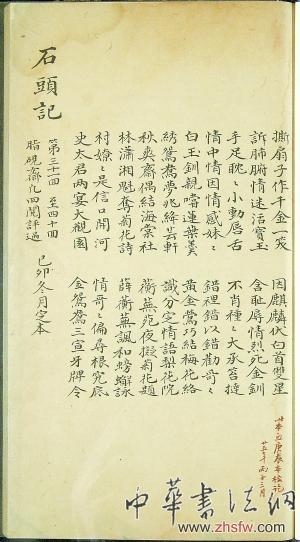 撕扇子作千金一笑 因麒麟伏白首雙星
訴肺腑情迷活寶玉 含耻辱情烈死金釧
手足眈々小動唇舌 不肖種々大承笞撻
情中情因情感妹々 錯裡錯以錯勸哥々
白玉釧親嚐蓮葉羹 黃金鶯巧結梅花絡
綉鴛鴦夢兆絳芸軒 識分定情語梨花院
秋爽齋偶結海棠社 蘅蕪苑夜擬菊花題
林瀟湘魁奪菊花詩 薛蘅蕪諷和螃蠏詠
村嫽々是信口開河 情哥々偏尋根究底
史太君兩宴大觀園 金鴛鴦三宣牙牌令
石頭記
第三十一回 至四十回
脂硯齋凡四閱評過 己卯冬月定本
庚辰本校訖
廿五年丙子三月
中華書法網
www.zhsfw.com